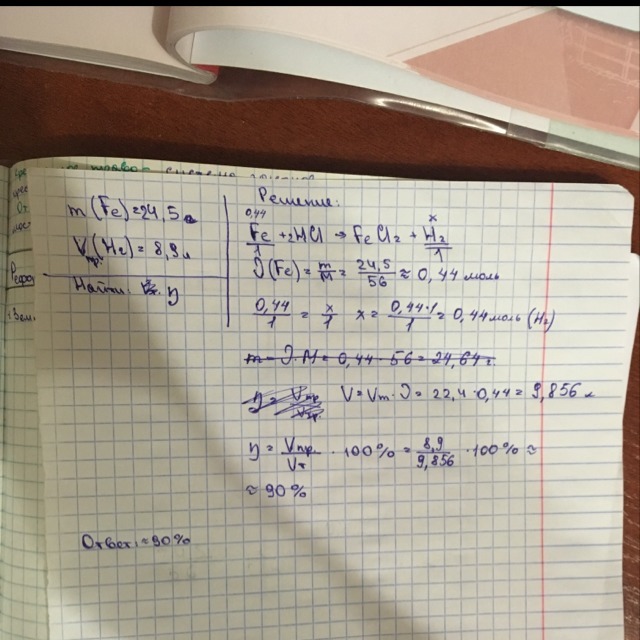 m (Fe)=24,5 г
Vпр.(H₂)= 8,9 л
Найти: η
Решение:
0,44 x
Fe + 2HCl → FeCl₂ + H₂
1 1
ν(Fe) = m/M = 24,5/56 ≈ 0,44 моль
0,44/1 = x/1 x = 0,44·1/1 = 0,44 моль (H₂)
m = ν·M = 0,44 · 56 = 24,64 г.
η = Vпр V = Vm · ν = 22,4 · 0,44 = 9,856 л
η = Vпр/Vт · 100% = 8,9/9,856 · 100% ≈
≈ 90%
Ответ: ≈90%